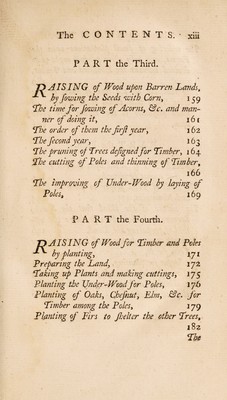 The CONTENTS. xiii
PART the Third.
RAISING of Wood upon Barren Lands,
by ſowing the Seeds with Corn, 159
The time for ſowing of Acorns, &c. and man-
ner of doing it, 161
The order of them the firſt year, 162
The ſecond year, 163
The pruning of Trees deſigned for Timber, 164
The cutting of Poles and thinning of Timber,
166
The improving of Under-Wood by laying of
Poles, 169
PART the Fourth.
RAISING of Wood for Timber and Poles
by planting, 171
Preparing the Land, 172
Taking up Plants and making cuttings, 175
Planting the Under-Wood for Poles, 176
Planting of Oaks, Cheſnut, Elm, &c. for
Timber among the Poles, 179
Planting of Firs to ſhelter the other Trees,
182
The